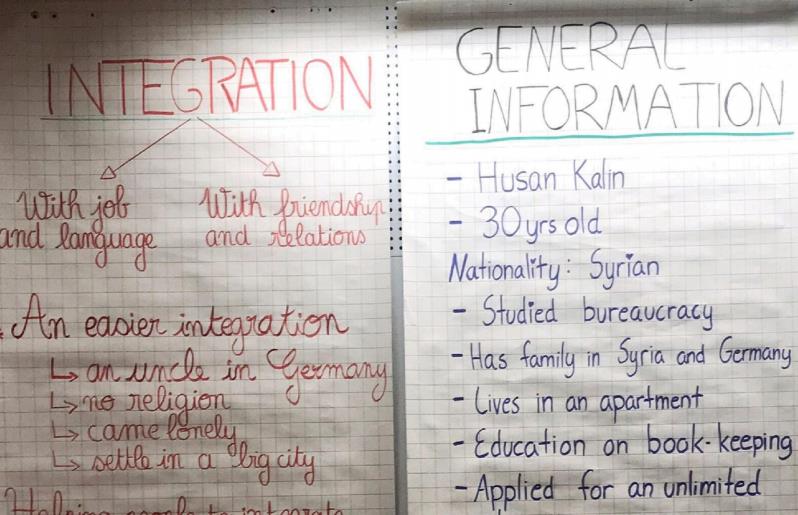 INTEGRATION
With job
and language
With friendship
and relations
An easier integration
↳ an uncle in Germany
↳ no religion
↳ came lonely
↳ settle in a big city
Helping people to integrate
GENERAL
INFORMATION
- Husan Kalin
- 30 yrs old
Nationality: Syrian
- Studied bureaucracy
- Has family in Syria and Germany
- Lives in an apartment
- Education on book-keeping
- Applied for an unlimited